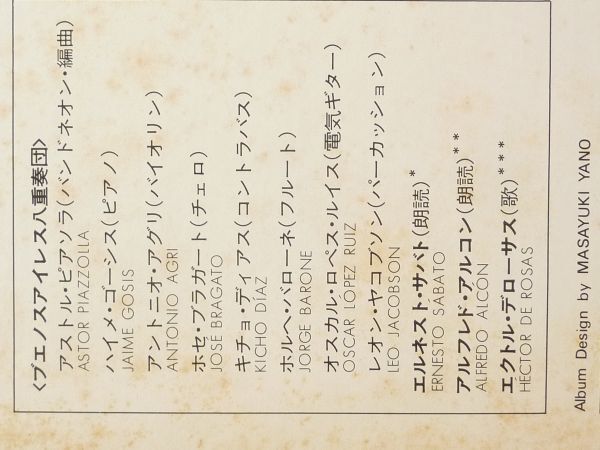 〈ブエノスアイレス八重奏団〉
アストル・ピアソラ(バンドネオン・編曲)
ASTOR PIAZZOLLA
ハイメ・ゴーシス(ピアノ)
JAIME GOSIS
アントニオ・アグリ(バイオリン)
ANTONIO AGRI
ホセ・ブラガート(チェロ)
JOSE BRAGATO
キチョ・ディアス(コントラバス)
KICHO DÍAZ
ホルヘ・バローネ(フルート)
JORGE BARONE
オスカル・ロペス・ルイス(電気ギター)
OSCAR LÓPEZ RUIZ
レオン・ヤコブソン(パーカッション)
LEO JACOBSON
エルネスト・サバト(朗読)*
ERNESTO SABATO
アルフレド・アルコン(朗読)**
ALFREDO ALCÓN
エクトル・デローサス(歌)***
HECTOR DE ROSAS
Album Design by MASAYUKI YANO